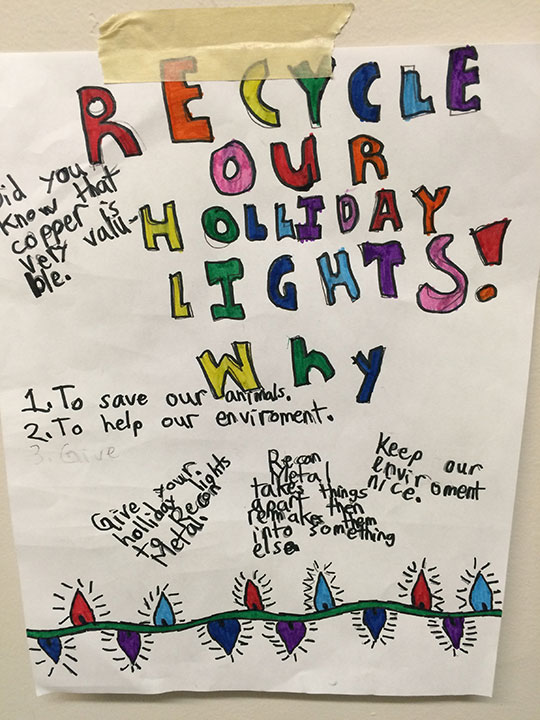 RECYCLE
OUR
HOLLIDAY
LIGHTS!
Did you
know that
copper is
very valu-
ble.
Why
1. To save our animals.
2. To help our enviroment.
3. Give
Give your
holliday lights
to Recon
Metal.
Recon
Metal
takes things
apart then
remakes them
into something
else.
Keep our
enviroment
nice.